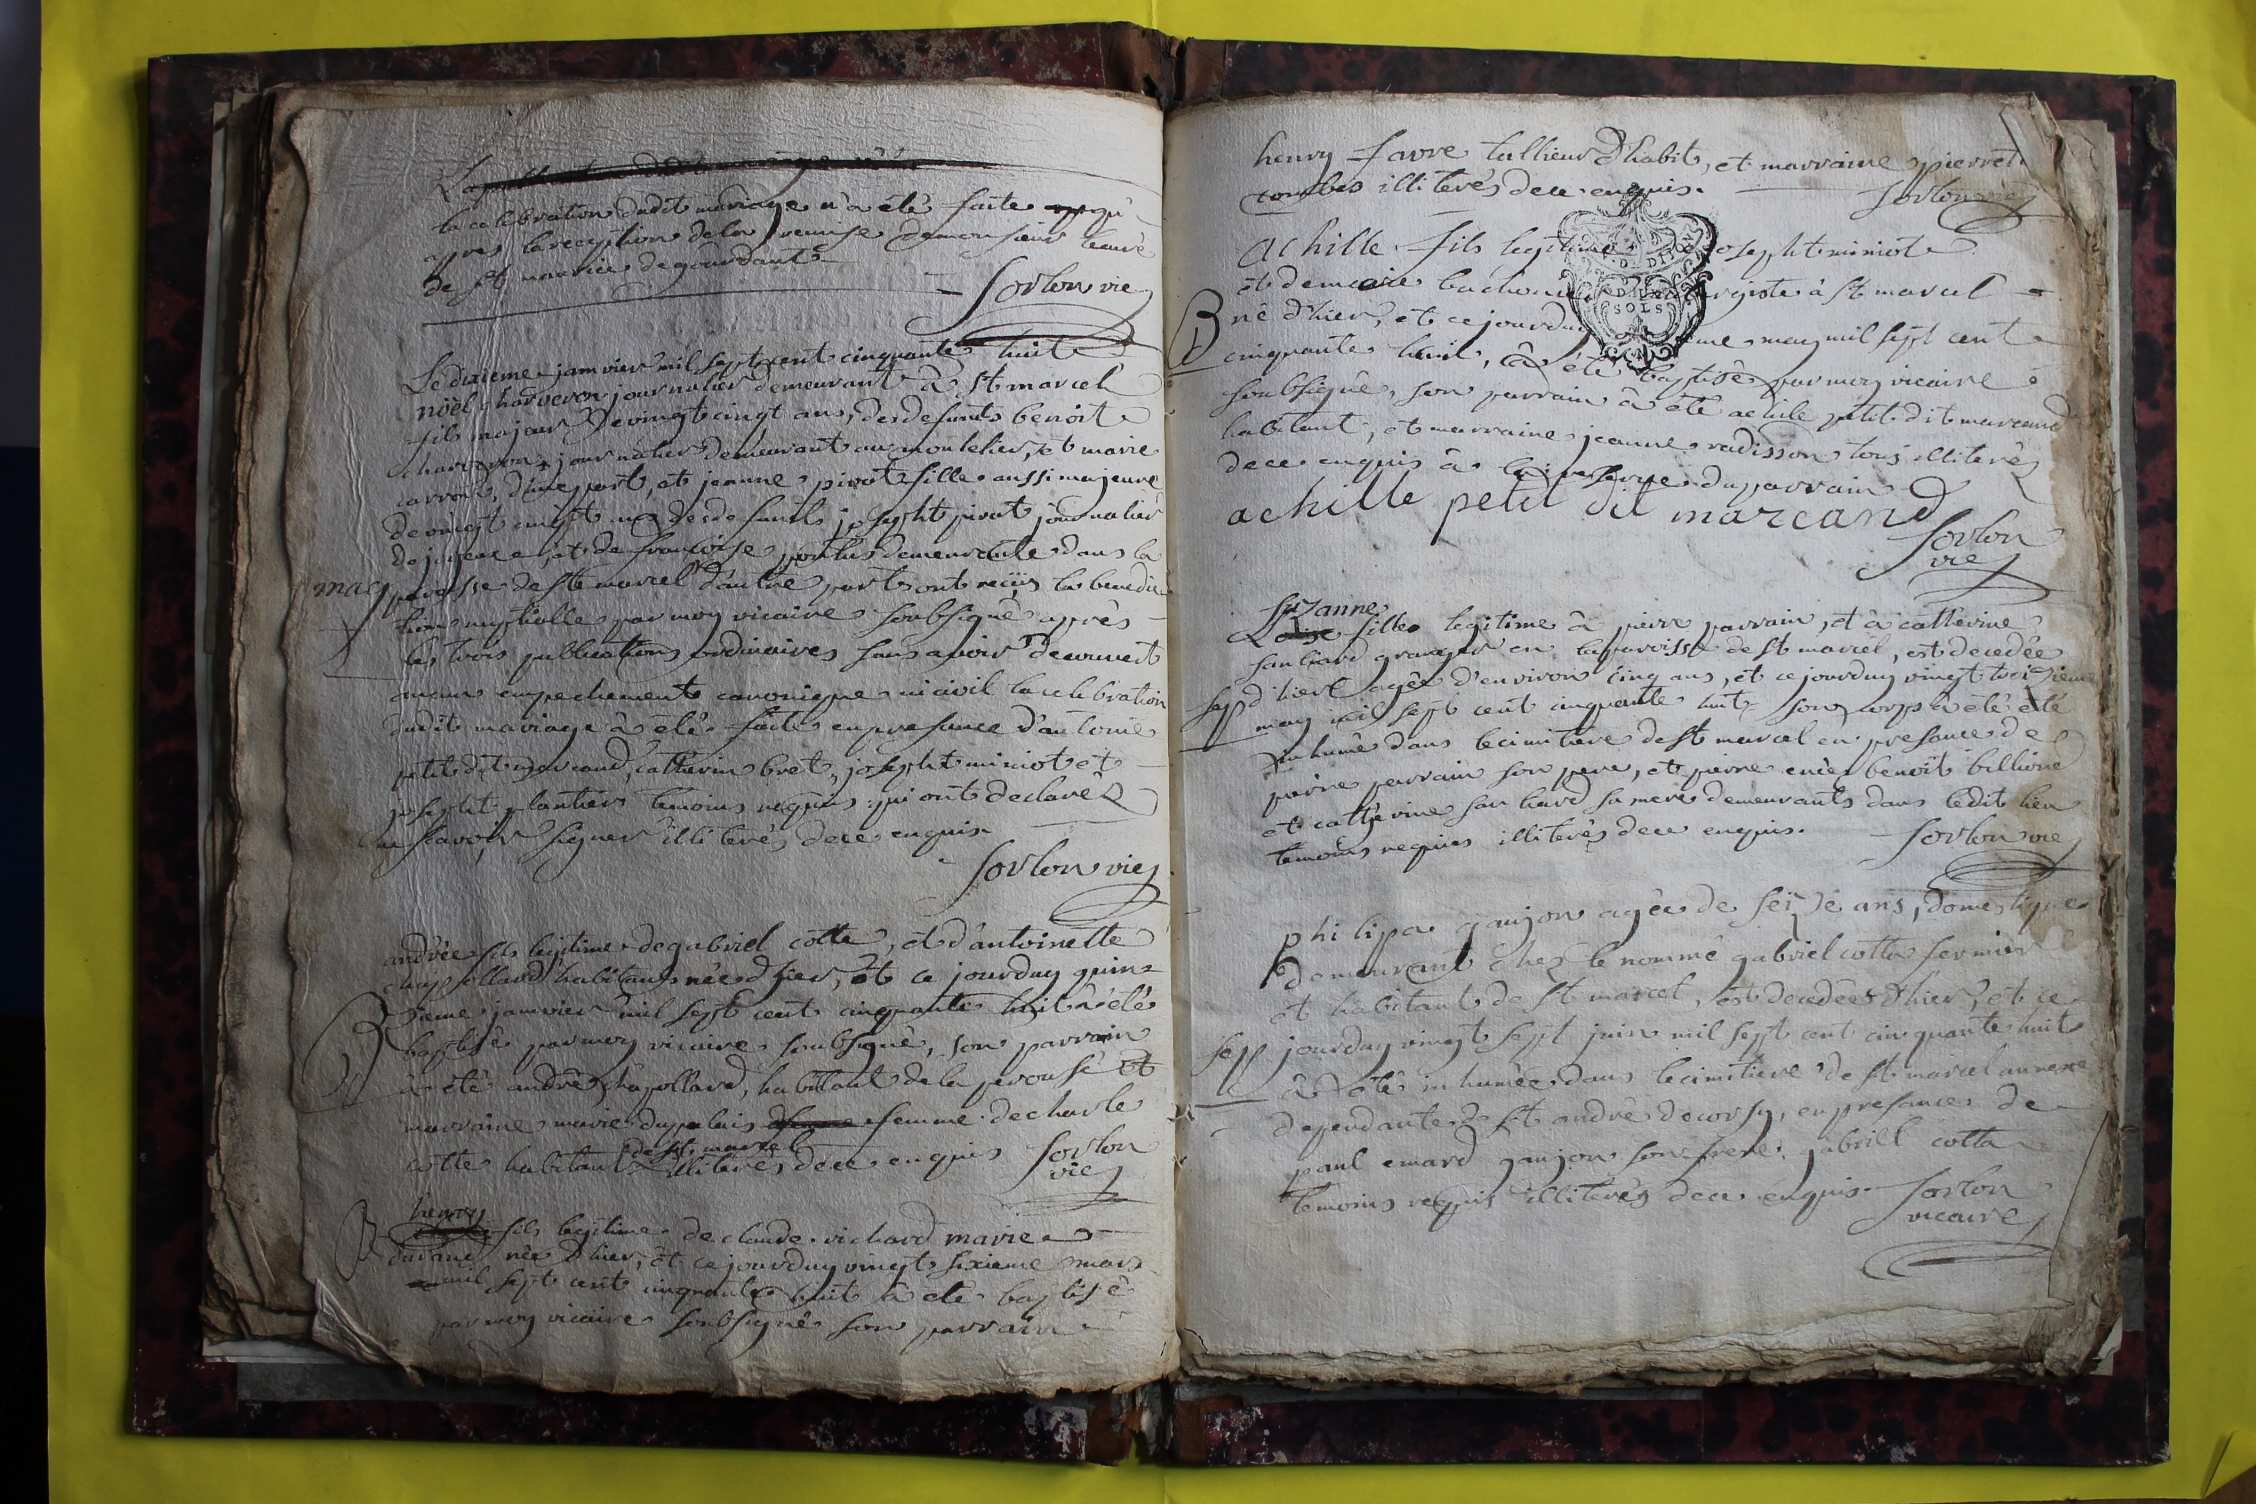 la celebration dudit mariage n'a été faite qu'
apres la reception de la remise de monsieur le curé
de st maurice de gourdant
Sorlon vic
Le dixieme janvier mil sept cent cinquante huit
nöel charveron journalier demeurant à st marcel
fils majeur de vingt cinqt ans, des defunts benoit
charveron journalier demeurant au montelier, et marie
carron, d'une part, et jeanne pivot fille aussi majeure
de vingt cinqt ans des defunts joseph pivot journalier
de joyeux et de francoise demeurante dans la
mag
paroisse de st marcel d'autre part ont reçus la benedic
tion nuptialle par moy vicaire soubsigné après
les trois publications ordinaires sans avoir decouvert
aucun empechement canonique ni civil la celebration
dudit mariage à été faite en presance d'antoine
petit dit marcand, catherin bret, joseph miniot et
joseph plantier temoins requis qui ont declarés
ne scavoir signer illiterés de ce enquis
Sorlon vic
andrée fils legitime de gabriel cotte, et d'antoinette
chapollard habitans née d'hier, et ce jourduy quin
B
zieme janvier mil sept cent cinquante huit à été
baptisé par moy vicaire soubsigné, son parrain
à été andré chapollard, habitant de la perouse et
marraine marie dupalais femme de charle
de st marcel
cotte habitant illiterés de ce enquis Sorlon
vic
henry
B
fils legitime de claude richard marie
durand née d'hier, et ce jourduy vingt sixieme mars
mil sept cent cinquante huit à été baptisé
par moy vicaire soubsigné son parrain
henry favre tallieur d'habit, et marraine pierret
combes illiterés de ce enquis.
Sorlon vic
Achille fils legitime joseph miniot
et de marie à st marcel
B
né d'hier, et ce jourduy me may mil sept cent
cinquante huit, à été baptisé par moy vicaire
soubsigné, son parrain à été achile petit dit marcand
habitant, et marraine jeanne radisson tous illiterés
de ce enquis à la reserve du parrain
achille petit dit marcand
Sorlon
vic
Suzanne
fille legitime à pierre parrain, et à catterine
sanliard granger en la paroisse de st marcel, est decedée
sepp
d'hiert agée d'environ cinq ans, et ce jourduy vingt troisieme
may mil sept cent cinquante huit son corps à été été
inhumé dans le cimitiere de st marcel en presance de
pierre parrain son pere, et pierre benoit billion
et catherine sanliard sa mere demeurants dans ledit lieu
temoins requis illiterés de ce enquis.
Sorlon vic
philipa gaujon agée de seize ans, domestique
demeurant chez le nommé gabriel cotta fermier
et habitant de st marcel, est decedée d'hier, et ce
sepp
jourduy vingt sept juin mil sept cent cinquante huit
à été inhumée dans le cimitiere de st marcel annexe
dependante de st andré de corsy, en presance de
paul emard gaujon son frere, gabriell cotta
temoins requis illiterés de ce enquis
Sorlon
vicaire
DEUX
SOLS